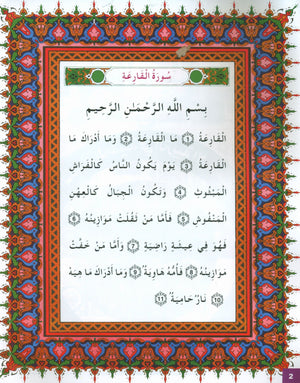 سُورَةُ الْقَارِعَةِ
بِسْمِ اللَّهِ الرَّحْمَٰنِ الرَّحِيمِ
الْقَارِعَةُ ١ مَا الْقَارِعَةُ ٢ وَمَا أَدْرَاكَ مَا
الْقَارِعَةُ ٣ يَوْمَ يَكُونُ النَّاسُ كَالْفَرَاشِ
الْمَبْثُوثِ ٤ وَتَكُونُ الْجِبَالُ كَالْعِهْنِ
الْمَنْفُوشِ ٥ فَأَمَّا مَنْ ثَقُلَتْ مَوَازِينُهُ ٦
فَهُوَ فِي عِيشَةٍ رَاضِيَةٍ ٧ وَأَمَّا مَنْ خَفَّتْ
مَوَازِينُهُ ٨ فَأُمُّهُ هَاوِيَةٌ ٩ وَمَا أَدْرَاكَ مَا هِيَهْ
١٠ نَارٌ حَامِيَةٌ ١١
2